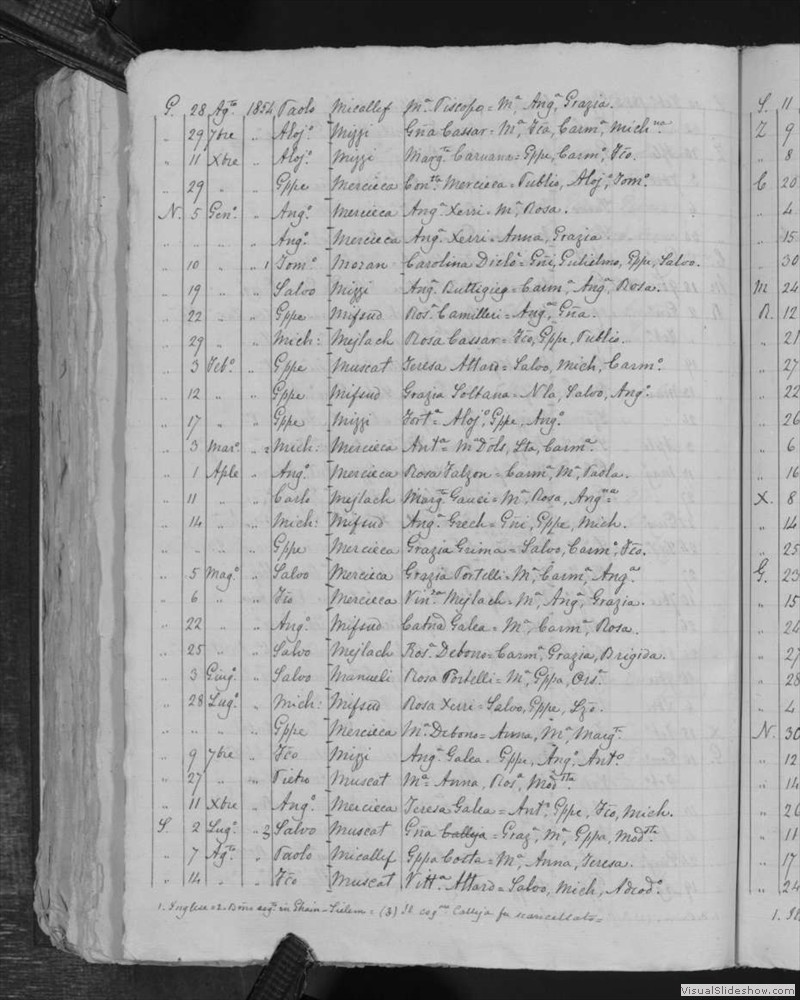 G. 28 Agto 1854 Paolo Micallef Ma Piscopo = Ma, Anga, Grazia.
" 29 7bre " Alojo Mizzi Gña Cassar = Ma, Fco, Carma, Michna
" 11 Xbre " Alojo Mizzi Margta Caruana = Gppe, Carmo, Fco.
" 29 " " Gppe Mercieca Conta Mercieca = Publio, Alojo, Tomo.
N. 5 Geno " Ango Mercieca Anga Xerri = Ma, Rosa.
" " " " Ango Mercieca Anga Xerri = Anna, Grazia
" 10 " " 1 Tomo Moran Carolina = Gni, Gulielmo, Gppe, Salvo.
" 19 " " Salvo Mizzi Anga Buttigieg = Carma, Anga, Rosa.
" 22 " " Gppe Mifsud Rosa Camilleri = Anga, Gña.
" 29 " " Mich: Mejlach Rosa Cassar = Fco, Gppe, Publio.
" 3 Febo " Gppe Muscat Teresa Attard = Salvo, Mich, Carmo.
" 12 " " Gppe Mifsud Grazia Soltana = Nla, Salvo, Ango.
" 17 " " Gppe Mizzi Forta = Alojo, Gppe, Ango.
" 3 Maro " 2 Mich: Mercieca Anta = Ma Dols, Lta, Carma.
" 1 Aple " Ango Mercieca Rosa Falzon = Carma, Ma, Paola.
" 11 " " Carlo Mejlach Margta Gauci = Ma, Rosa, Angca
" 14 " " Mich: Mifsud Anga Grech = Gni, Gppe, Mich.
" " " " Gppe Mercieca Grazia Grima = Salvo, Carmo, Fco.
" 5 Mago " Salvo Mercieca Grazia Portelli = Ma, Carma, Anga.
" 6 " " Fco Mercieca Vinza Mejlach = Ma, Anga, Grazia.
" 22 " " Ango Mifsud Catna Galea = Ma, Carma, Rosa.
" 25 " " Salvo Mejlach Rosa Debono = Carma, Grazia, Brigida.
" 3 Giugo " Salvo Manueli Rosa Portelli = Ma, Gppa,
" 28 Lugo " Mich: Mifsud Rosa Xerri = Salvo, Gppe, Lzo.
" " " " Gppe Mercieca Ma Debono = Anna, Ma, Margta
" 9 7bre " Fco Mizzi Anga Galea = Gppe, Ango, Anto.
" 27 " " Pietro Muscat Ma = Anna, Rosa, Modsta
" 11 Xbre " Ango Mercieca Teresa Galea = Anto, Gppe, Fco, Mich.
S. 2 Lugo " 3 Salvo Muscat Gña Calleja = Graza, Ma, Gppa, Modsta
" 7 Agto " Paolo Micallef Gppa Costa = Ma, Anna, Teresa.
" 14 " " Fco Muscat Vitta Attard = Salvo, Mich,
1. Inglese = 2. in Ghain-Sielem = (3) Il cogme Calleja fu scancellato =
S. 11
Z 9
" 8
C 20
" 4
" 15
" 30
M 24
R. 12
" 21
" 27
" 22
" 26
" 6
" 16
X. 8
" 14
" 25
G. 23
" 15
" 24
" 27
" 28
" 4
N. 30
" 12
" 14
" 26
" 11
" 17
" 24
VisualSlideshow.com